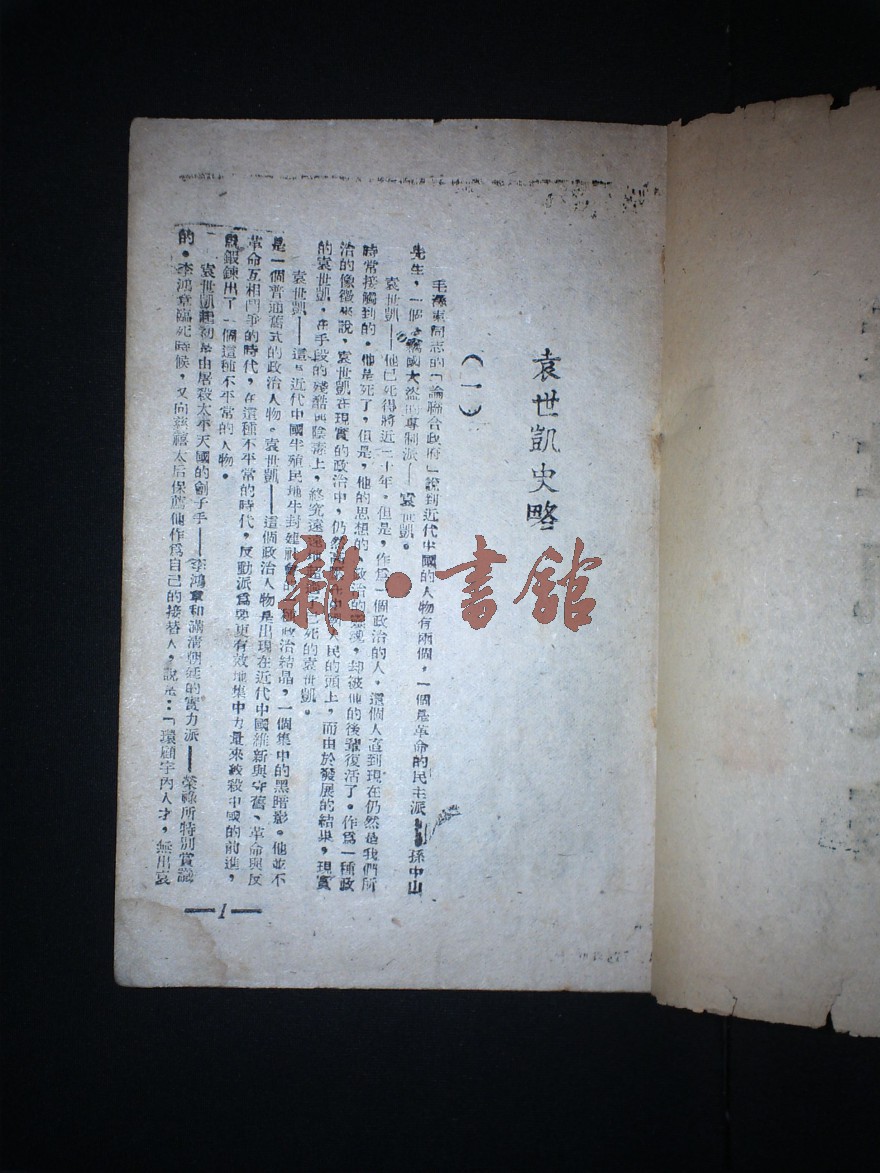 袁世凱史略
(一)
毛澤東同志的「論聯合政府」說到近代中國的人物有兩個，一個是革命的民主派——孫中山
先生，一個是竊國大盜的專制派——袁世凱。
袁世凱——他已死得將近三十年。但是，作爲一個政治的人，這個人直到現在仍然是我們所
時常接觸到的。他是死了，但是，他的思想的、政治的靈魂，却被他的後輩復活了。作爲一種政
治的像徵來說，袁世凱在現實的政治中，仍然 人民的頭上，而由於發展的結果，現實
的袁世凱，在手段的殘酷與陰毒上，終究遠遠地超過了已死的袁世凱。
袁世凱——這是近代中國半殖民地半封建社會的一種政治結晶，一個集中的黑暗影。他並不
是一個普通舊式的政治人物。袁世凱——這個政治人物是出現在近代中國維新與守舊、革命與反
革命互相鬥爭的時代，在這種不平常的時代，反動派爲要更有效地集中力量來絞殺中國的前進，
就鍛鍊出了一個這種不平常的人物。
袁世凱起初是由屠殺太平天國的劊子手——李鴻章和滿清朝廷的實力派——榮祿所特別賞識
的。李鴻章臨死時候，又向慈禧太后保薦他作爲自己的接替人，說是：「環顧宇內人才，無出袁
—1—
雜·書館